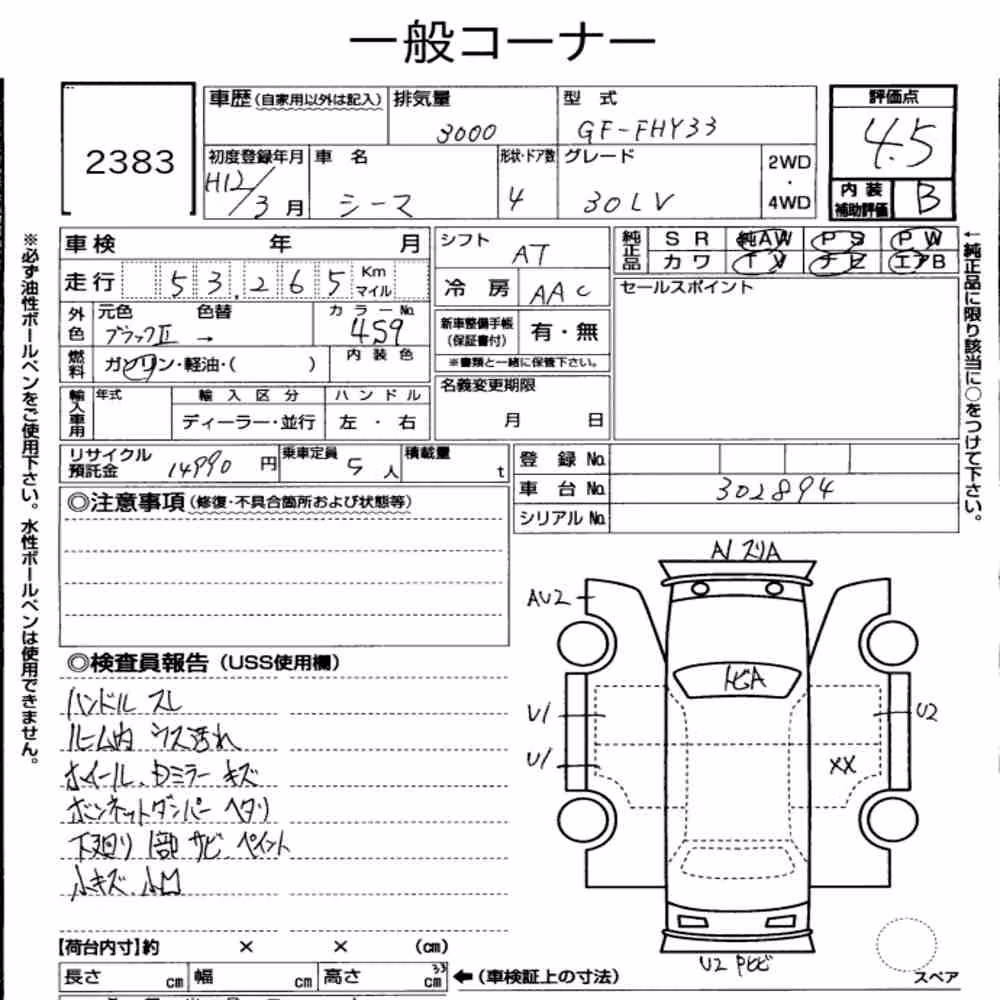 一般コーナー
2383
車歴(自家用以外は記入) 排気量 3000
型式 GF-FHY33
評価点 4.5
初度登録年月 H12/3月
車名 シーマ
形状・ドア数 4
グレード 30LV
2WD・4WD
内装補助評価 B
車検 年 月
走行 53,265 Km マイル
外色 元色 ブラックⅡ → 色替
カラーNo. 4S9
燃料 ガソリン・軽油・( )
内装色
輸入車用 年式 輸入区分 ハンドル
ディーラー・並行 左・右
シフト AT
冷房 AAC
新車整備手帳(保証書付) 有・無
※書類と一緒に保管下さい。
名義変更期限
月 日
純正品 SR 純AW PS PW
カワ TV ナビ エアB
セールスポイント
リサイクル預託金 14990円
乗車定員 5人
積載量 t
登録No.
車台No. 302894
シリアルNo.
◎注意事項(修復・不具合箇所および状態等)
◎検査員報告(USS使用欄)
ハンドル スレ
ルーム内 シス汚れ
ホイール、Dミラー キズ
ボンネットダンパー ヘタリ
下廻り 1部 サビ、ペイント
小キズ、小凹
A1 スリA
AU2
トビA
U1
U2
U1
XX
U2
【荷台内寸】約 × × (cm)
長さ cm 幅 cm 高さ 33 cm ←(車検証上の寸法)
スペア
※必ず油性ボールペンをご使用下さい。水性ボールペンは使用できません。
←純正品に限り該当に○をつけて下さい。